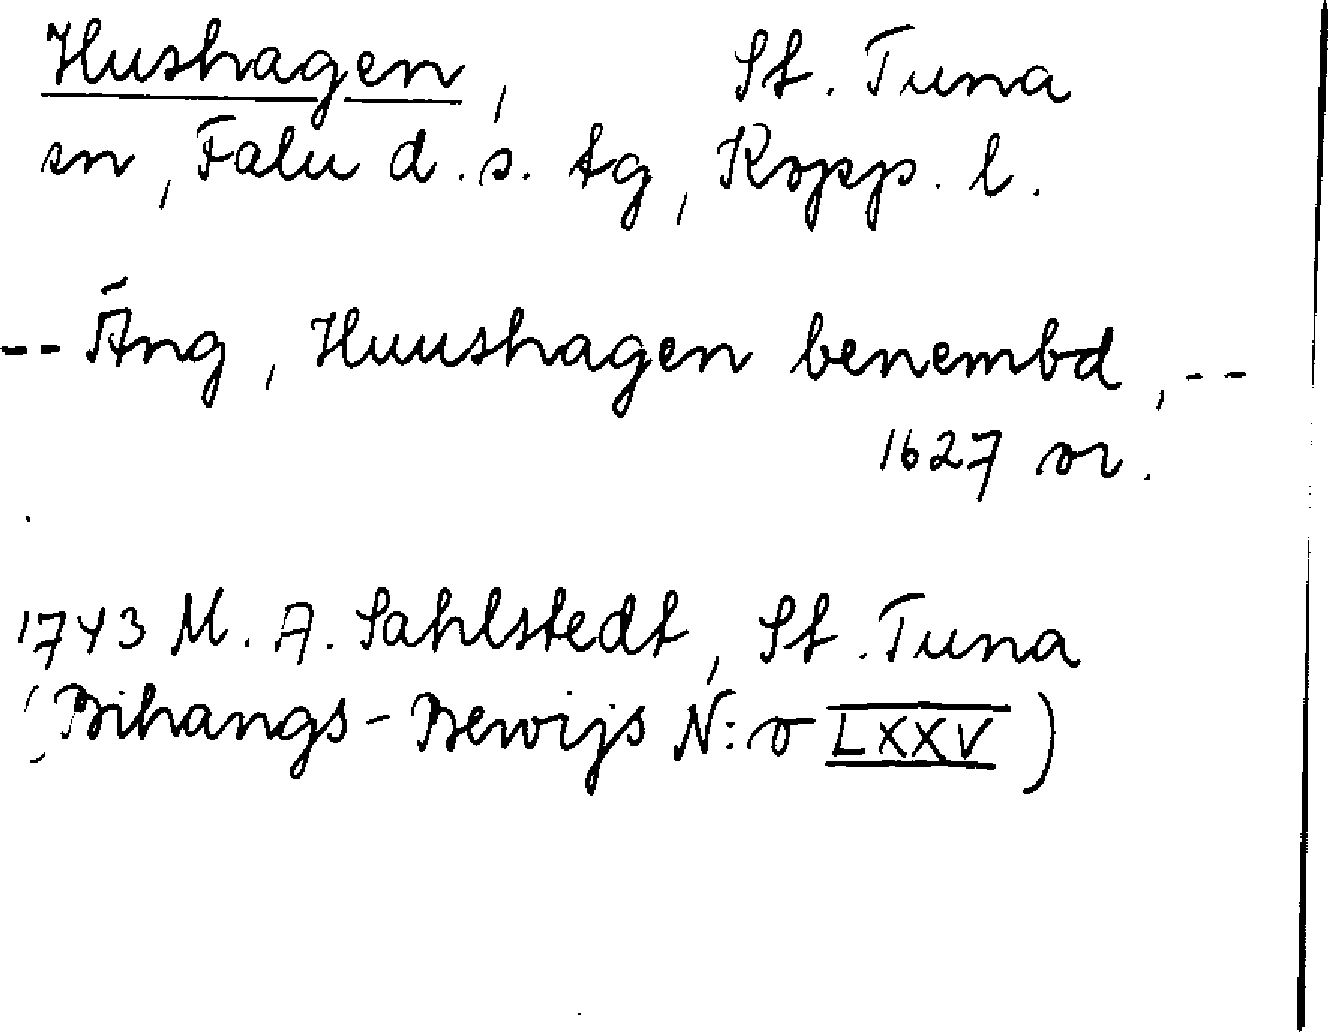 Hushagen, St. Tuna
sn, Falu d.s. tg, Kopp. l.
-- Äng, Huushagen benembd, --
1627 or.
1743 M. A. Sahlstedt, St. Tuna
(Bihangs-Bewijs N:o LXXV)